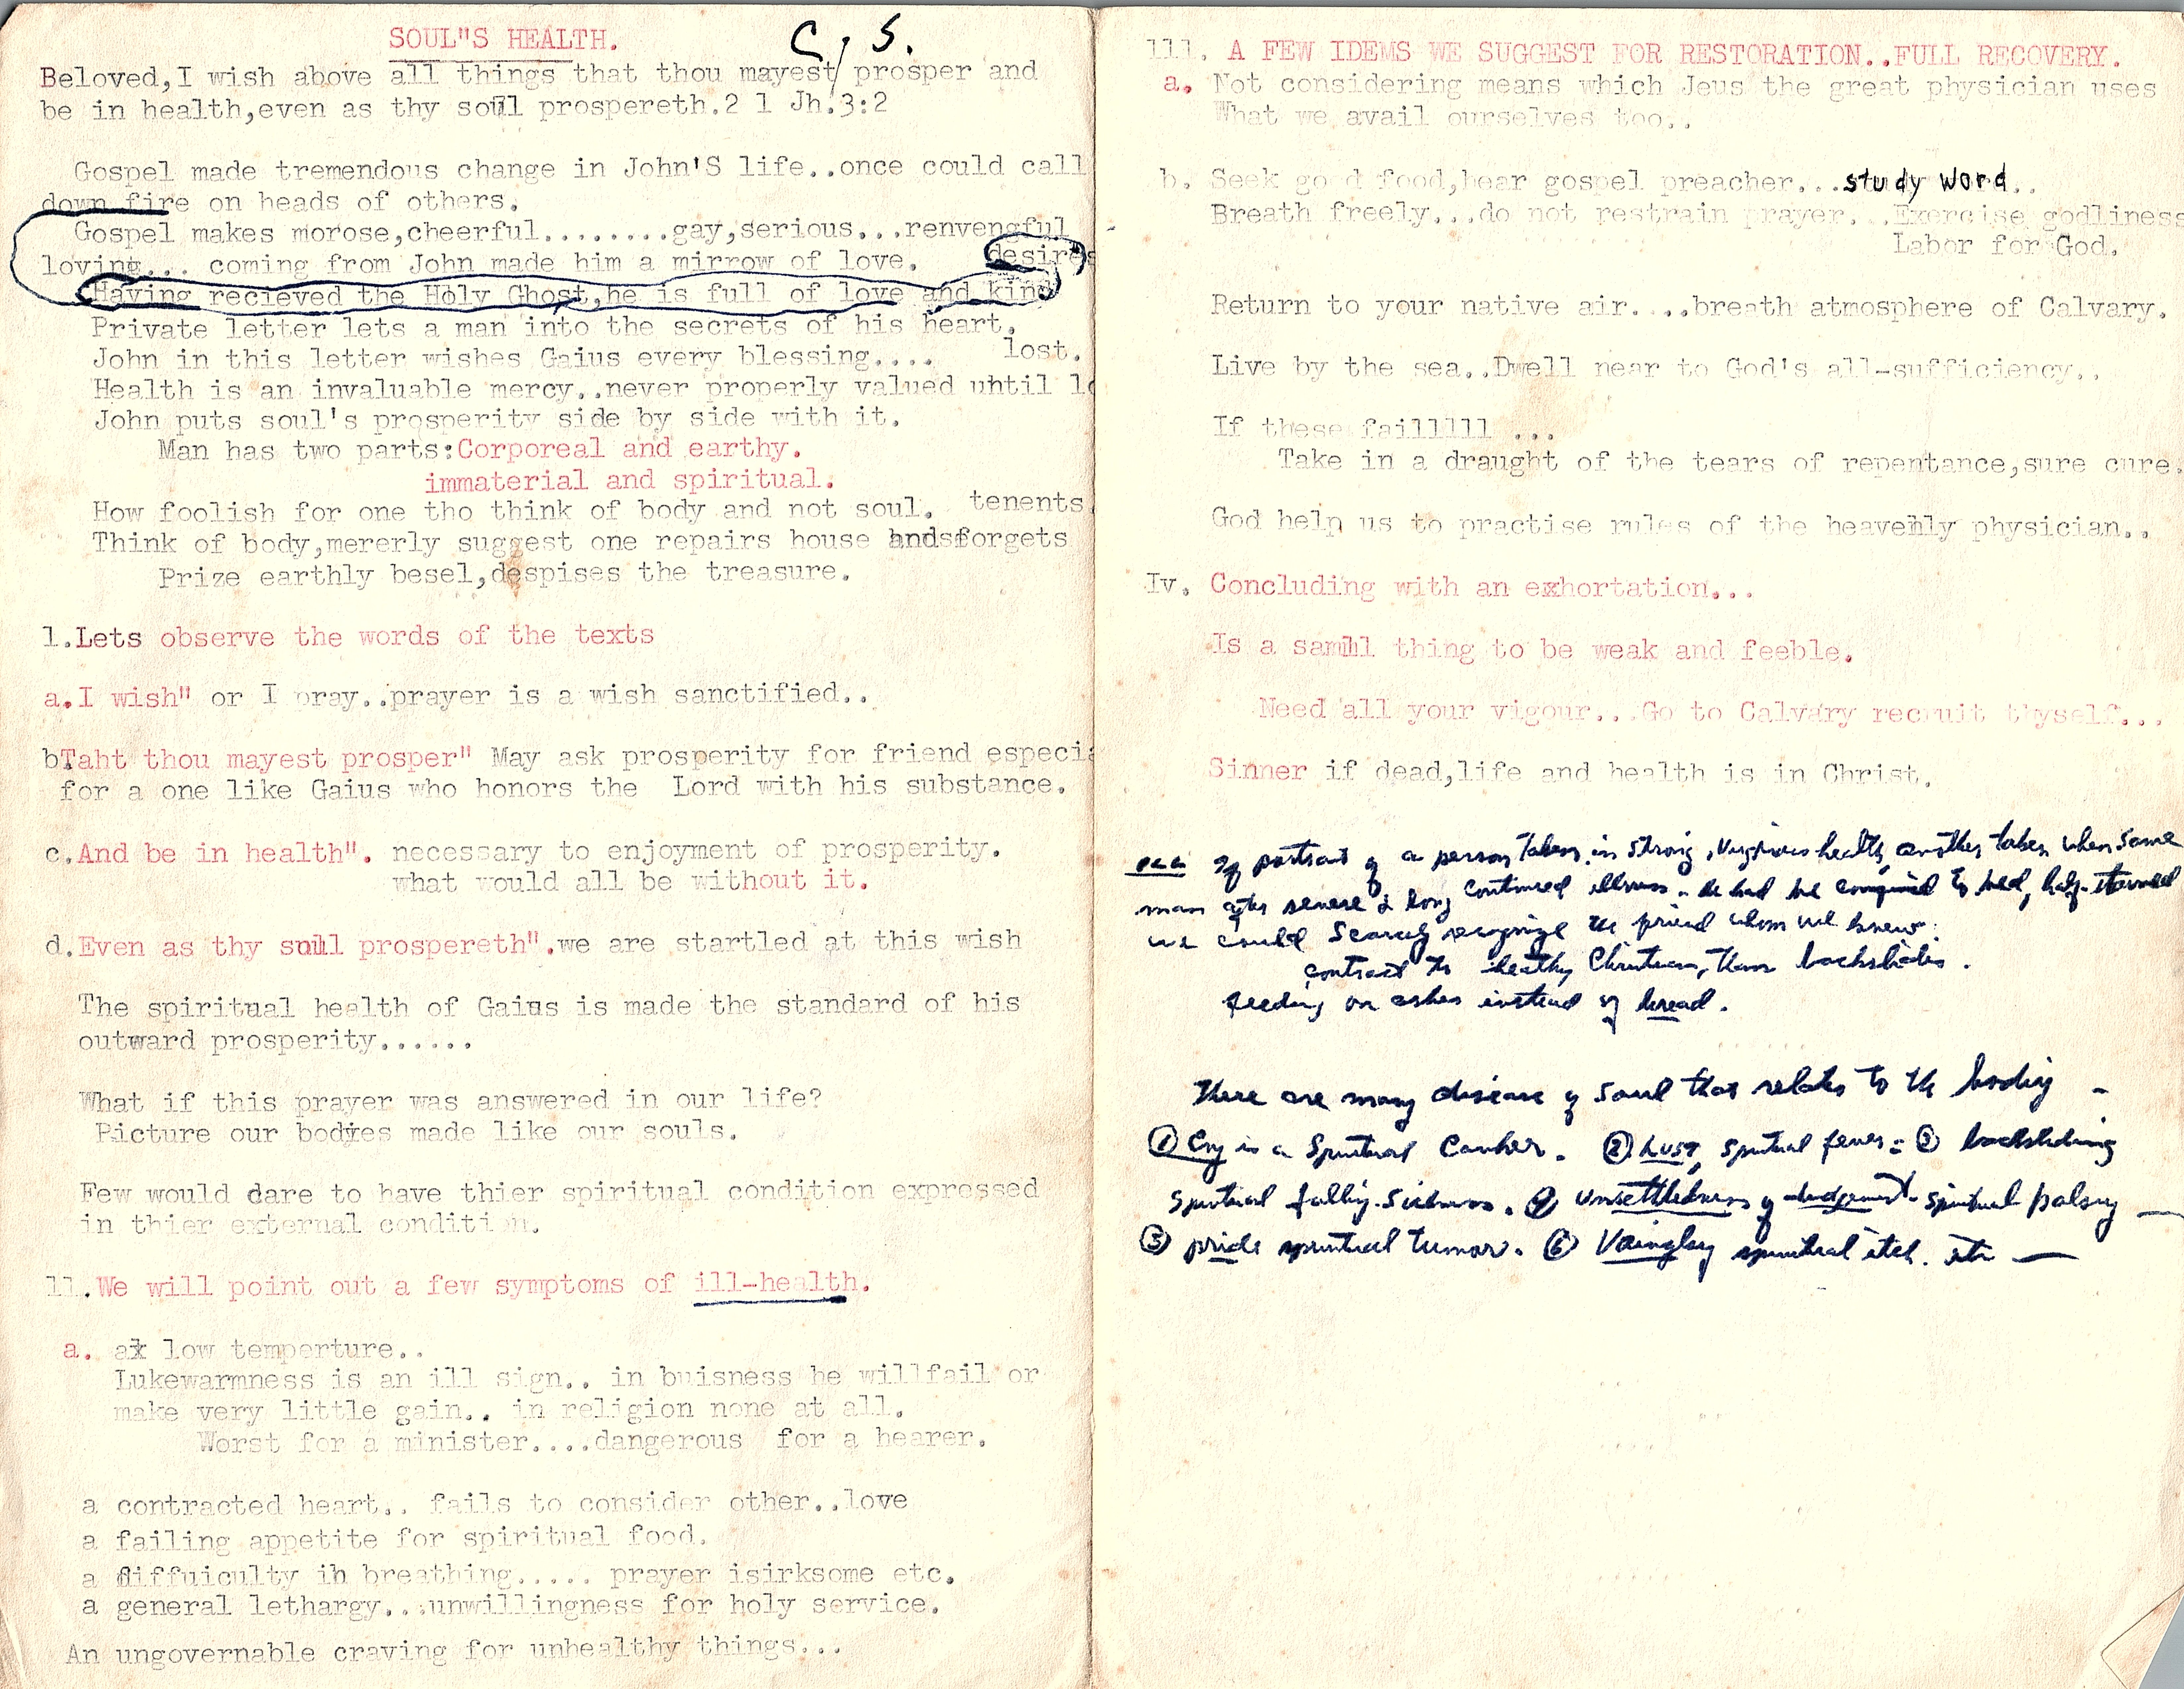 SOUL"S HEALTH.
C, S.
Beloved,I wish above all things that thou mayest prosper and
be in health,even as thy soul prospereth.2 l Jh.3:2
Gospel made tremendous change in John'S life..once could call
down fire on heads of others.
Gospel makes morose,cheerful........gay,serious...renvengful
loving... coming from John made him a mirrow of love. desires
Having recieved the Holy Ghost,he is full of love and kind
Private letter lets a man into the secrets of his heart.
John in this letter wishes Gaius every blessing.... lost.
Health is an invaluable mercy..never properly valued until lo
John puts soul's prosperity side by side with it.
Man has two parts:Corporeal and earthy.
immaterial and spiritual.
How foolish for one tho think of body and not soul. tenents
Think of body,mererly suggest one repairs house andsforgets
Prize earthly besel,despises the treasure.
l.Lets observe the words of the texts
a.I wish" or I pray..prayer is a wish sanctified..
bTaht thou mayest prosper" May ask prosperity for friend especia
for a one like Gaius who honors the Lord with his substance.
c.And be in health". necessary to enjoyment of prosperity.
what would all be without it.
d.Even as thy soul prospereth".we are startled at this wish
The spiritual health of Gaius is made the standard of his
outward prosperity......
What if this prayer was answered in our life?
Picture our bodies made like our souls.
Few would dare to have thier spiritual condition expressed
in thier external condition.
ll.We will point out a few symptoms of ill-health.
a. a low temperture..
Lukewarmness is an ill sign.. in buisness he willfail or
make very little gain.. in religion none at all.
Worst for a minister....dangerous for a hearer.
a contracted heart.. fails to consider other..love
a failing appetite for spiritual food.
a diffuiculty in breathing..... prayer isirksome etc.
a general lethargy...unwillingness for holy service.
An ungovernable craving for unhealthy things...
lll. A FEW IDEMS WE SUGGEST FOR RESTORATION..FULL RECOVERY.
a. Not considering means which Jeus the great physician uses
What we avail ourselves too..
b. Seek good food,hear gospel preacher...study word..
Breath freely...do not restrain prayer...Exercise godliness
Labor for God.
Return to your native air....breath atmosphere of Calvary.
Live by the sea..Dwell near to God's all-sufficiency..
If these failllll ...
Take in a draught of the tears of repentance,sure cure.
God help us to practise rules of the heavenly physician..
Iv. Concluding with an exhortation...
Is a samll thing to be weak and feeble.
Need all your vigour...Go to Calvary recruit thyself...
Sinner if dead,life and health is in Christ.
of portrait of a person taken in strong, health, another taken when same
man after severe & long continued illness. to bed, half-starved
we could scarcely recognize the friend whom we knew.
contrast the healthy Christian, than backslider.
feeding on ashes instead of bread.
There are many disease of soul that relates to the body -
① is a Spiritual Canker. ② Lust, spiritual fever: ③ backsliding
spiritual falling-sickness. ④ unsettledness of judgement spiritual palsy —
⑤ pride spiritual tumor. ⑥ Vainglory spiritual itch. etc —